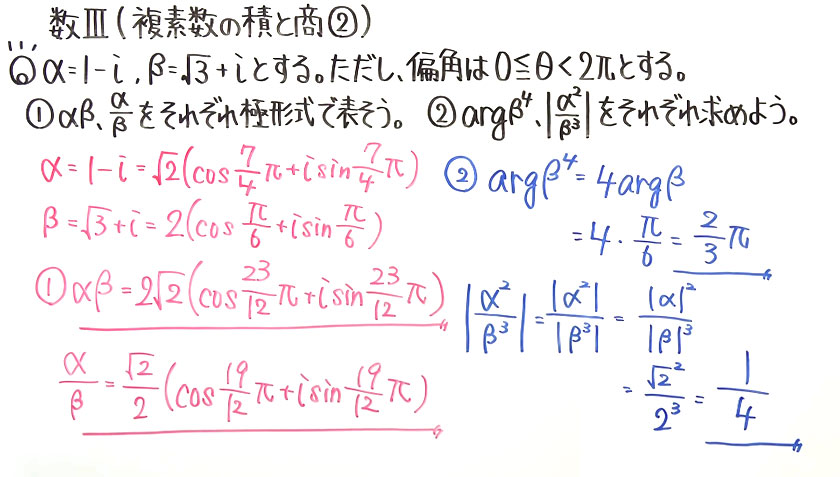 数Ⅲ(複素数の積と商②)
◎α=1-i, β=√3+iとする。ただし、偏角は0≦θ<2πとする。
①αβ、α/βをそれぞれ極形式で表そう。 ②argβ⁴、|α²/β³|をそれぞれ求めよう。
α=1-i=√2(cos7/4π+isin7/4π)
β=√3+i=2(cosπ/6+isinπ/6)
①αβ=2√2(cos23/12π+isin23/12π)
α/β=√2/2(cos19/12π+isin19/12π)
②argβ⁴=4argβ
=4・π/6=2/3π
|α²/β³|=|α²|/|β³|=|α|²/|β|³
=√2²/2³=1/4